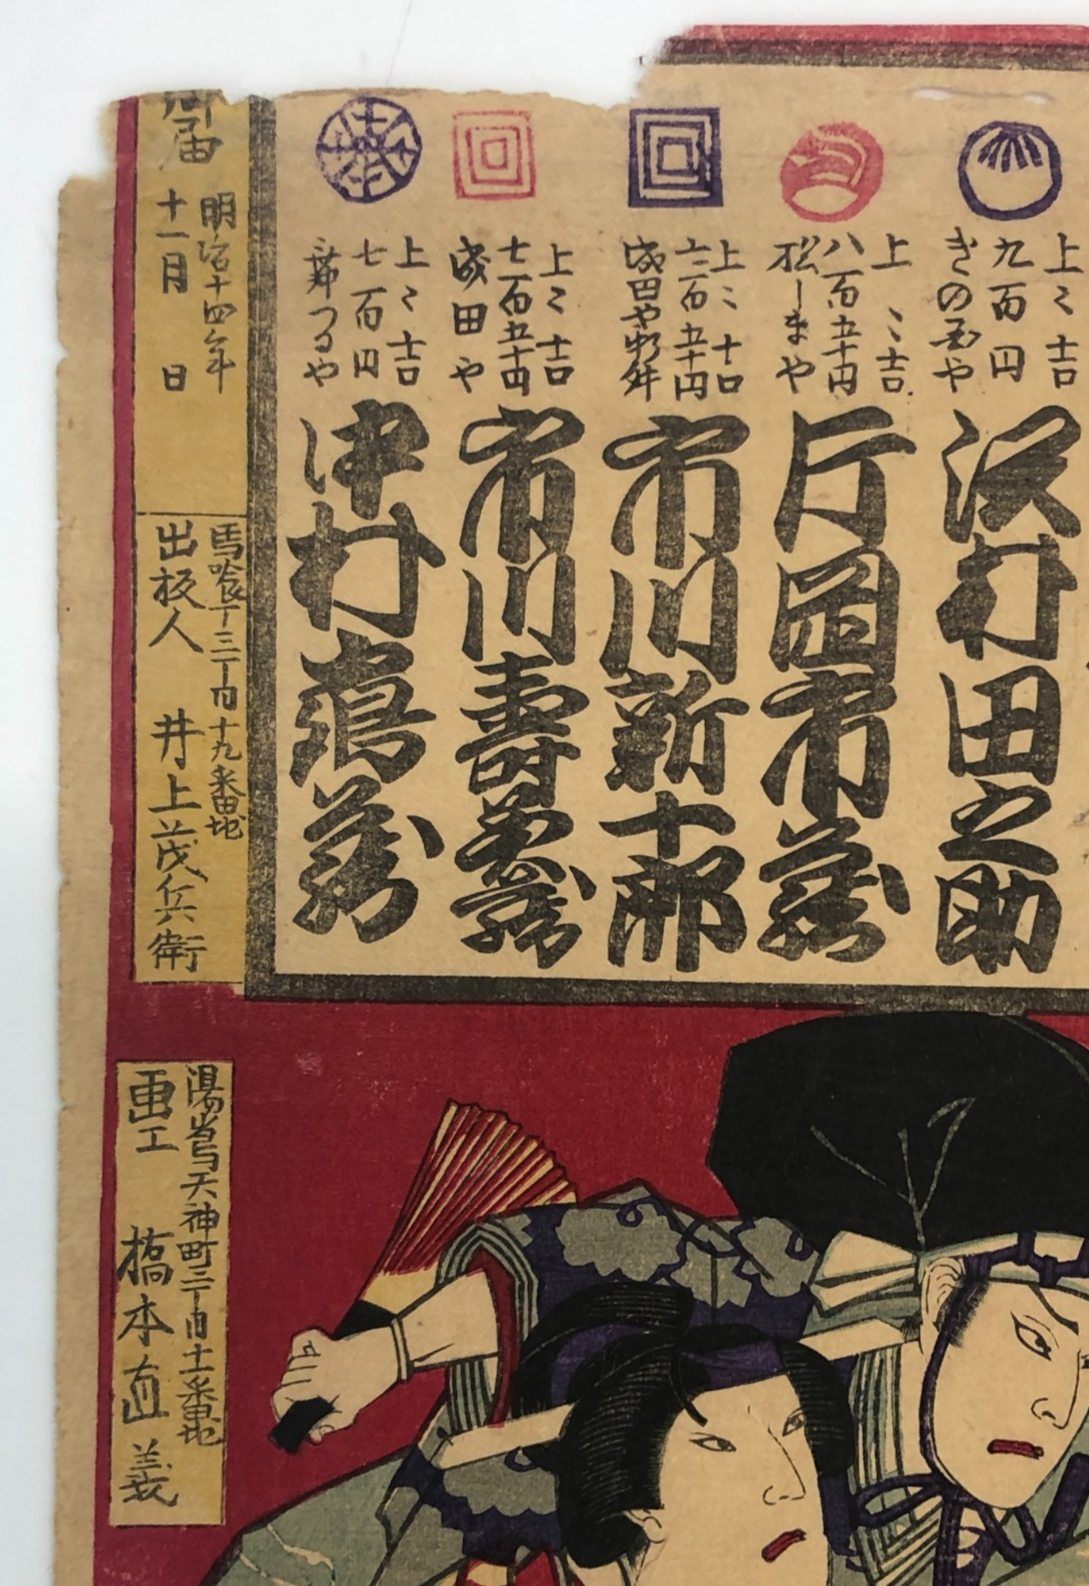 上々吉
九百円
きの国や
沢村田之助
上々吉
八百五十円
松しまや
片岡市蔵
上々吉
六百五十円
成田や
市川新十郎
上々吉
七百五十円
成田や
市川寿美蔵
上々吉
七百円
舞つるや
中村鴈蔵
御届
明治十四年
十一月 日
馬喰丁三丁目十九番地
出板人 井上茂兵衛
湯島天神町三丁目十一番地
画工 橋本直義